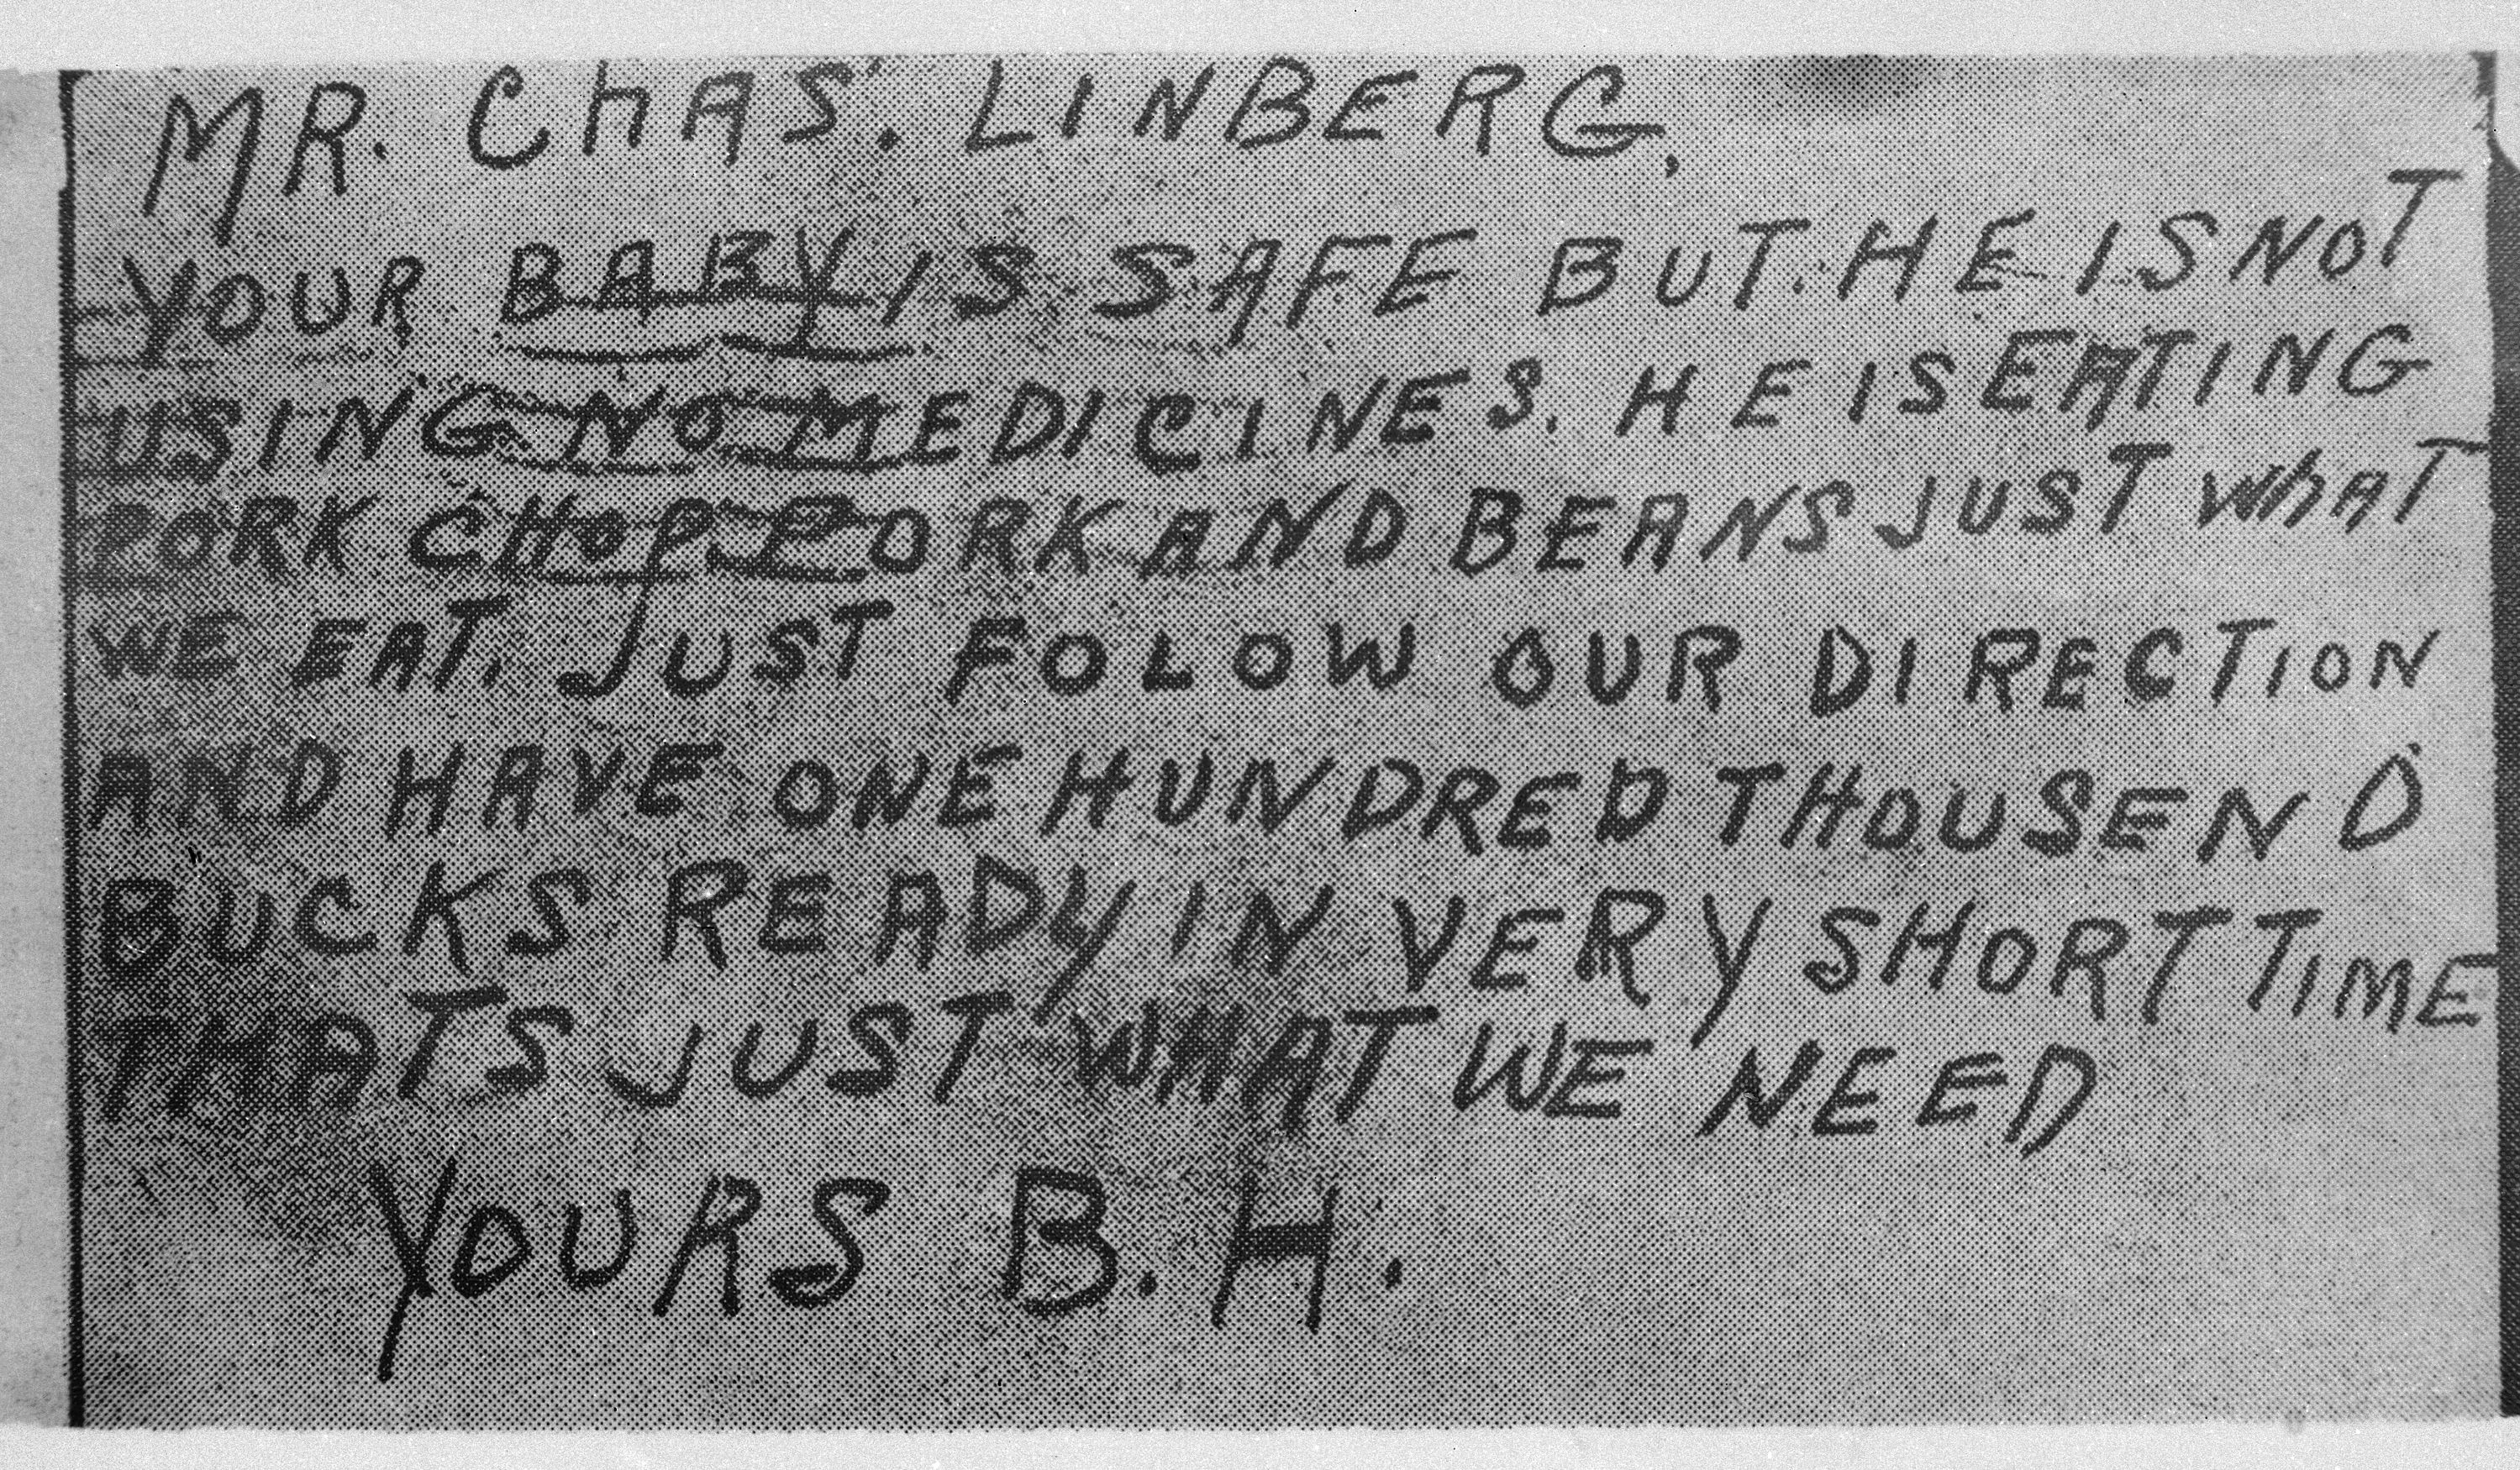 MR. ChAS. LINBERG,
YOUR BABY IS SAFE BUT HE IS NOT
USING NO MEDICINES. HE IS EATING
PORK CHOP PORK AND BEANS JUST WhAT
WE EAT. JUST FOLOW OUR DIRECTION
AND HAVE ONE HUNDRED THOUSEND
BUCKS READY IN VERY SHORT TIME
THATS JUST WHAT WE NEED
YOURS B.H.